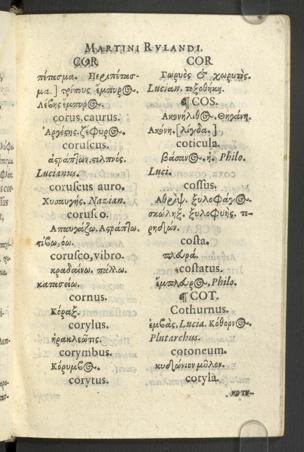 MARTINI RVLANDI.
COR
πέτασμα. Περιπέτασ-
μα.] τρίπυς ἐμπυρ@.
Λέβης ἐμπυρ@.
corus, caurus.
Ἀργέςης. ζέφυρ@.
coruscus.
ἀςράπτων. ςιλπνός.
Lucianus.
coruscus auro.
Χυσαυγής. Nazian.
corusco.
Ἀπαυγάζω. Ἀςράπτω.
corusco, vibro.
κραδαίνω. πάλλω.
cornus.
Κέραξ.
corylus.
ἡρακλεῶτις.
corymbus.
Κόρυμβ@.
corytus.
COR
Γωρυὸς & χωρυτὸς.
Lucian. τοξοθήκη.
¶ COS.
Ἀκονήλιθ@. Θηγάνη.
Ἀκονή. [λίγδα.]
coticula.
βάσαν@. ἡ. Philo.
Luci.
cossus.
Ἀβρὶψ. ξυλοφάγ@.
σκώληξ. ξυλοφυὴς. τε-
ρηδὼν.
costa.
πλευρά.
costatus.
ἔμπλευρ@, Philo.
¶ COT.
Cothurnus.
ἐμβὰς, Lucia. Κόθορν@.
Plutarchus.
cotoneum.
κυδώνιον μῆλον.
cotyla.